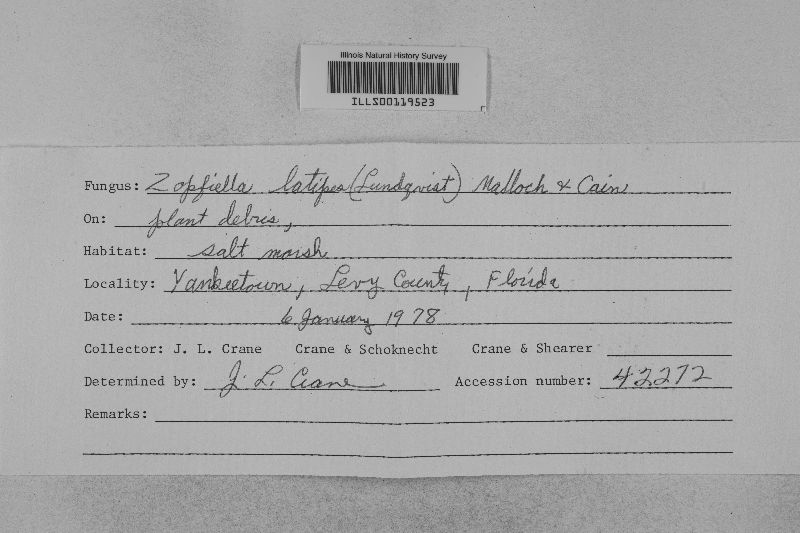 Illinois Natural History Survey
ILLS00119523
Fungus: Zopfiella latipes (Lundqvist) Malloch & Cain
On: plant debris,
Habitat: salt marsh
Locality: Yankeetown, Levy County, Florida
Date: 6 January 1978
Collector: J. L. Crane Crane & Schoknecht Crane & Shearer
Determined by: J. L. Crane Accession number: 42272
Remarks: